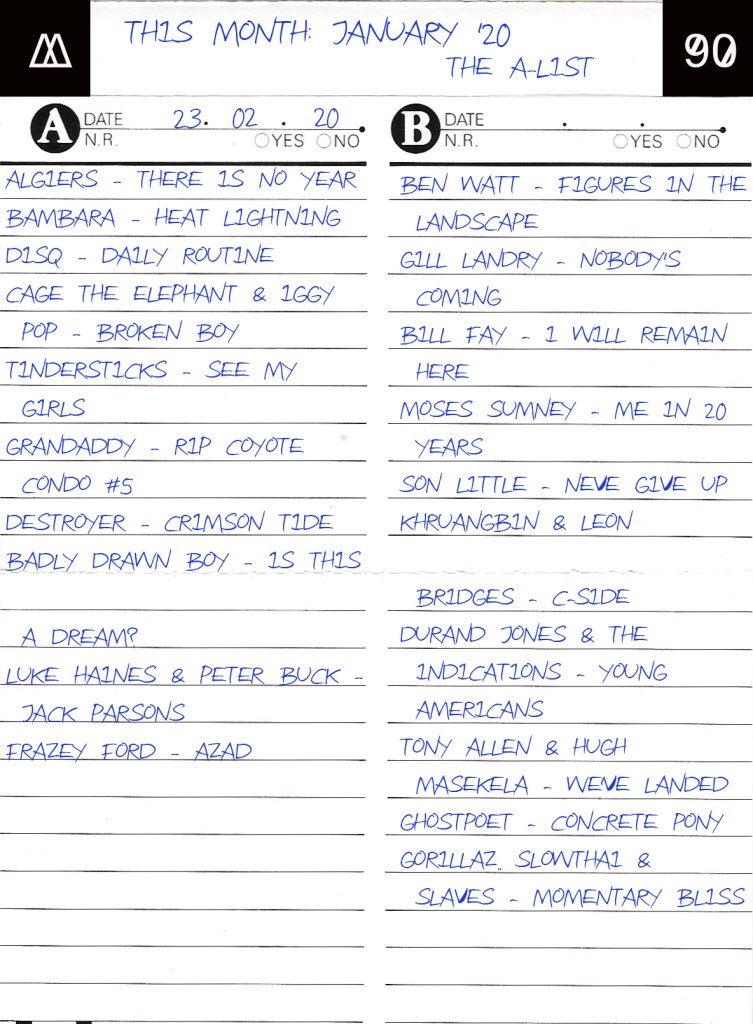 THIS MONTH: JANUARY '20
THE A-LIST
90
A DATE 23. 02 . 20
N.R. YES NO
ALGIERS - THERE IS NO YEAR
BAMBARA - HEAT LIGHTNING
DISQ - DAILY ROUTINE
CAGE THE ELEPHANT & IGGY
POP - BROKEN BOY
TINDERSTICKS - SEE MY
GIRLS
GRANDADDY - RIP COYOTE
CONDO #5
DESTROYER - CRIMSON TIDE
BADLY DRAWN BOY - IS THIS
A DREAM?
LUKE HAINES & PETER BUCK -
JACK PARSONS
FRAZEY FORD - AZAD
B DATE . .
N.R. YES NO
BEN WATT - FIGURES IN THE
LANDSCAPE
GILL LANDRY - NOBODY'S
COMING
BILL FAY - I WILL REMAIN
HERE
MOSES SUMNEY - ME IN 20
YEARS
SON LITTLE - NEVE GIVE UP
KHRUANGBIN & LEON
BRIDGES - C-SIDE
DURAND JONES & THE
INDICATIONS - YOUNG
AMERICANS
TONY ALLEN & HUGH
MASEKELA - WEVE LANDED
GHOSTPOET - CONCRETE PONY
GORILLAZ, SLOWTHAI &
SLAVES - MOMENTARY BLISS